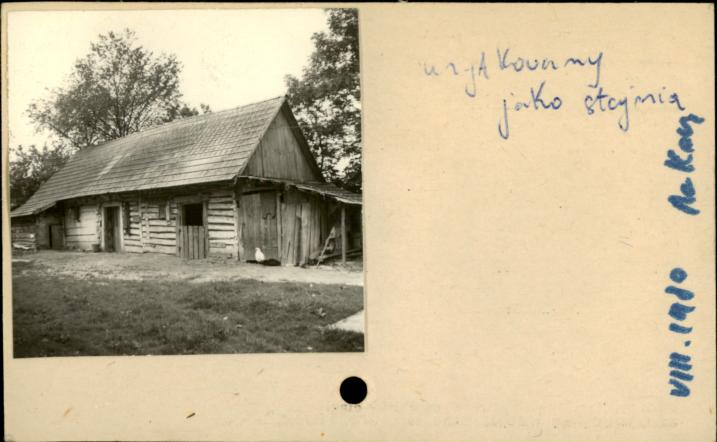 użytkowany
jako stajnia
VIII. 1980